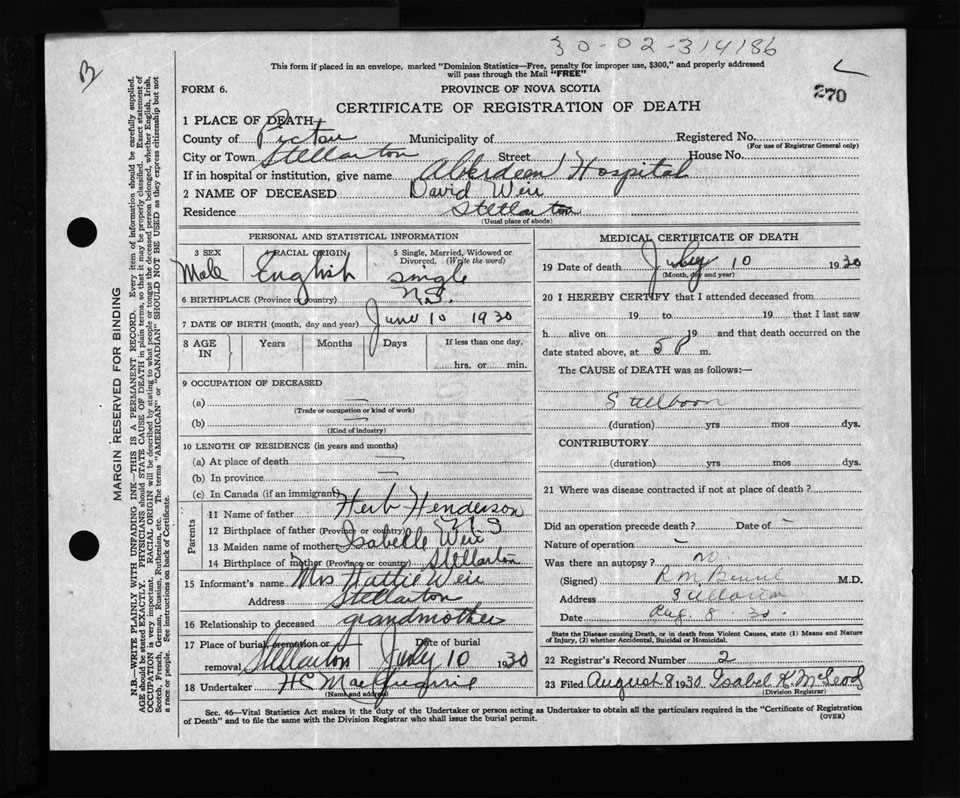 30-02-314186
B
This form if placed in an envelope, marked "Dominion Statistics—Free, penalty for improper use, $300," and properly addressed
will pass through the Mail "FREE"
FORM 6.
PROVINCE OF NOVA SCOTIA
270
CERTIFICATE OF REGISTRATION OF DEATH
1 PLACE OF DEATH
County of Pictou Municipality of Registered No.
(For use of Registrar General only)
City or Town Stellarton Street House No.
If in hospital or institution, give name Aberdeen Hospital
2 NAME OF DECEASED David Weir
Residence Stellarton
(Usual place of abode)
PERSONAL AND STATISTICAL INFORMATION
3 SEX 4 RACIAL ORIGIN 5 Single, Married, Widowed or
Divorced. (Write the word)
Male English single
6 BIRTHPLACE (Province or country) N.S.
7 DATE OF BIRTH (month, day and year) June 10 1930
8 AGE IN Years Months Days If less than one day,
hrs. or min.
9 OCCUPATION OF DECEASED
(a) —
(Trade or occupation or kind of work)
(b) —
(Kind of industry)
10 LENGTH OF RESIDENCE (in years and months)
(a) At place of death —
(b) In province —
(c) In Canada (if an immigrant)
Parents
11 Name of father Herb Henderson
12 Birthplace of father (Province or country) N S
13 Maiden name of mother Isabelle Weir
14 Birthplace of mother (Province or country) Stellarton
15 Informant's name Mrs Hattie Weir
Address Stellarton
16 Relationship to deceased grandmother
17 Place of burial, cremation or Date of burial
removal Stellarton July 10 1930
18 Undertaker H C
(Name and address)
MEDICAL CERTIFICATE OF DEATH
19 Date of death July 10 1930
(Month, day and year)
20 I HEREBY CERTIFY that I attended deceased from
19 to 19 that I last saw
h alive on 19 and that death occurred on the
date stated above, at 5 P m.
The CAUSE of DEATH was as follows:—
Stillborn
(duration) yrs mos dys.
CONTRIBUTORY
(duration) yrs mos dys.
21 Where was disease contracted if not at place of death?
Did an operation precede death? Date of –
Nature of operation –
Was there an autopsy? no
(Signed) R M M.D.
Address Stellarton
Date Aug. 8. 30.
State the Disease causing Death, or in death from Violent Causes, state (1) Means and Nature
of Injury, (2) whether Accidental, Suicidal or Homicidal.
22 Registrar's Record Number 2
23 Filed August 8 1930 Isabel K McLeod
(Division Registrar)
Sec. 46—Vital Statistics Act makes it the duty of the Undertaker or person acting as Undertaker to obtain all the particulars required in the "Certificate of Registration
of Death" and to file the same with the Division Registrar who shall issue the burial permit.
(OVER)
MARGIN RESERVED FOR BINDING
N.B.—WRITE PLAINLY WITH UNFADING INK—THIS IS A PERMANENT RECORD. Every item of information should be carefully supplied.
AGE should be stated EXACTLY. PHYSICIANS should STATE CAUSE OF DEATH in plain terms, so that it may be properly classified. Exact statement of
OCCUPATION is very important. RACIAL ORIGIN will be described by stating to what people or tongue the deceased person belonged, whether English, Irish,
Scotch, French, German, Russian, Ruthenian, etc. The terms "AMERICAN" or "CANADIAN" SHOULD NOT BE USED as they express citizenship but not
a race or people. See instructions on back of Certificate.